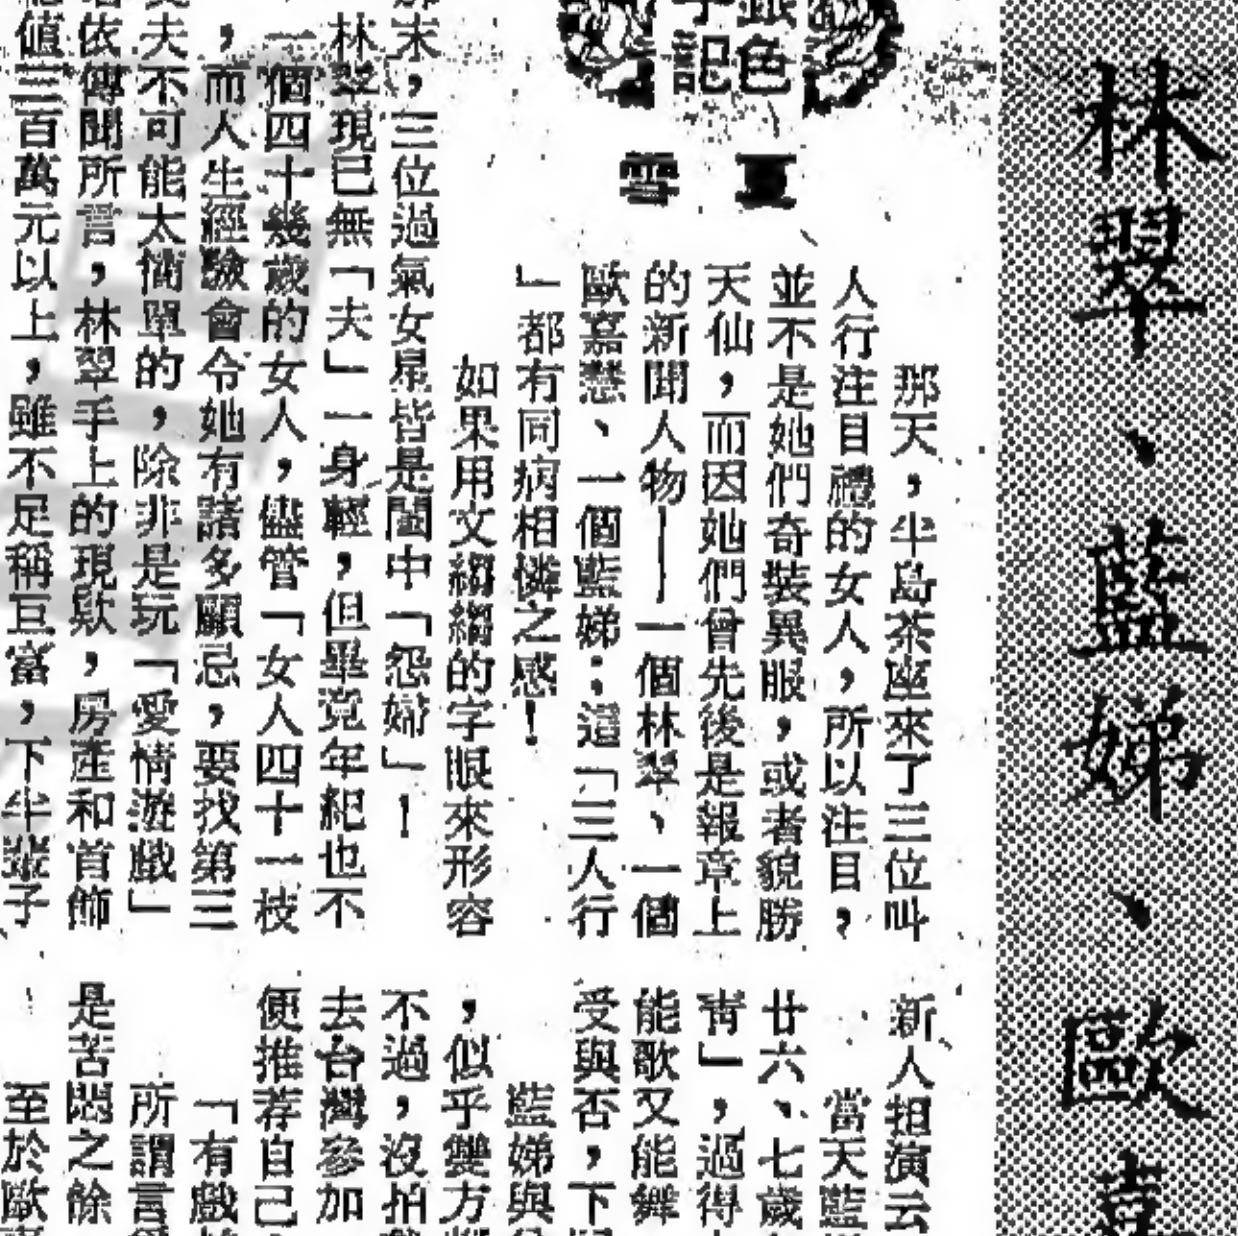 林翠、藍娣、歐嘉
銀色
手記
夏雪
那天，半島茶座來了三位叫
人行注目禮的女人，所以注目，
並不是她們奇裝異服，或者貌勝
天仙，而因她們曾先後是報章上
的新聞人物——一個林翠、一個
歐嘉慧、一個藍娣；這「三人行
」都有同病相憐之感！
如果用文縐縐的字眼來形容
末，三位過氣女星皆是閨中「怨婦」！
林翠現已無「夫」一身輕，但畢竟年紀也不
一個四十幾歲的女人，儘管「女人四十一枝
，而人生經驗會令她有諸多顧忌，要找第三
夫不可能太簡單的，除非是玩「愛情遊戲」
依傳聞所言，林翠手上的現欵，房產和首飾
值三百萬元以上，雖不足稱亘富，下半輩子
新人担演云
當天藍
廿六、七歲
青」，過得
能歌又能舞
受與否，下
藍娣與
，似乎雙方
不過，沒拍
去台灣參加
便推荐自己
「有戲
所謂言
是苦悶之餘
至於歐